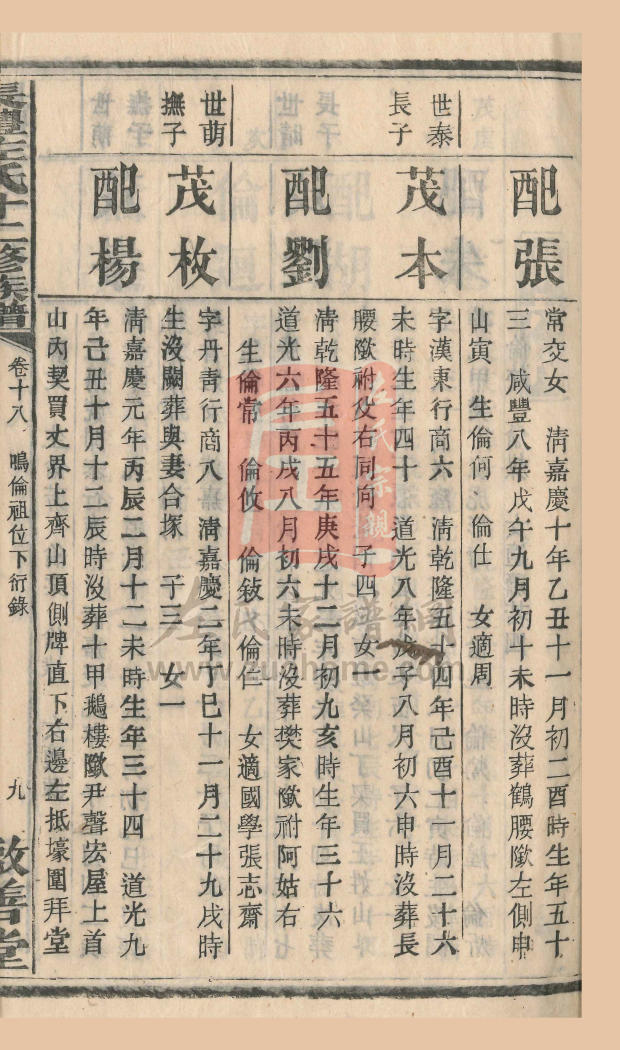 配張
常交女　清嘉慶十年乙丑十一月初二酉時生年五十
三　咸豐八年戊午九月初十未時沒葬鶴腰歘左側申
山寅　生倫何　倫仕　女適周
世泰
長子
茂本
字漢東行商六　清乾隆五十四年己酉十一月二十六
未時生年四十　道光八年戊子八月初六申時沒葬長
腰歘祔父右同向　子四　女一
配劉
清乾隆五十五年庚戌十二月初九亥時生年三十六
道光六年丙戌八月初六未時沒葬樊家歘祔阿姑右
生倫常　倫攸　倫敍　倫仁　女適國學張志齋
世萌
撫子
茂枚
字丹青行商八　清嘉慶二年丁巳十一月二十九戌時
生沒闕葬與妻合塚　子三　女一
配楊
清嘉慶元年丙辰二月十二未時生年三十四　道光九
年己丑十月十二辰時沒葬十甲鵝樓歘尹聲宏屋上首
山內契買丈界上齊山頂側牌直下右邊左抵壕圍拜堂
長澧左氏十二修族譜
卷十八　鳴倫祖位下衍錄
九
敦善堂
左氏宗親
左氏家譜網
www.zuohome.com